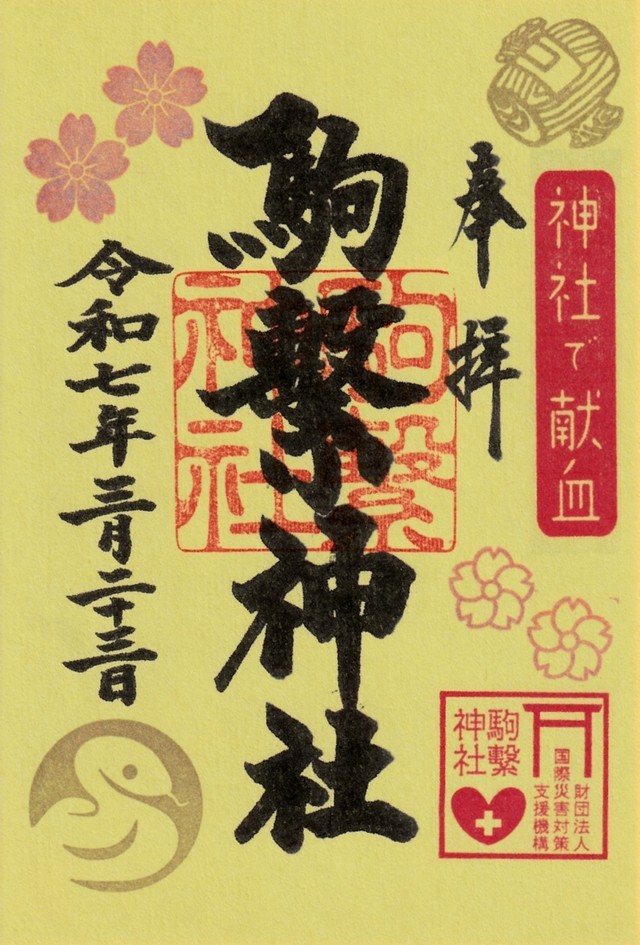 神社で献血
奉拝
駒繋神社
駒繋
神社
令和七年三月二十三日
駒繋
神社
財団法人
国際災害対策
支援機構